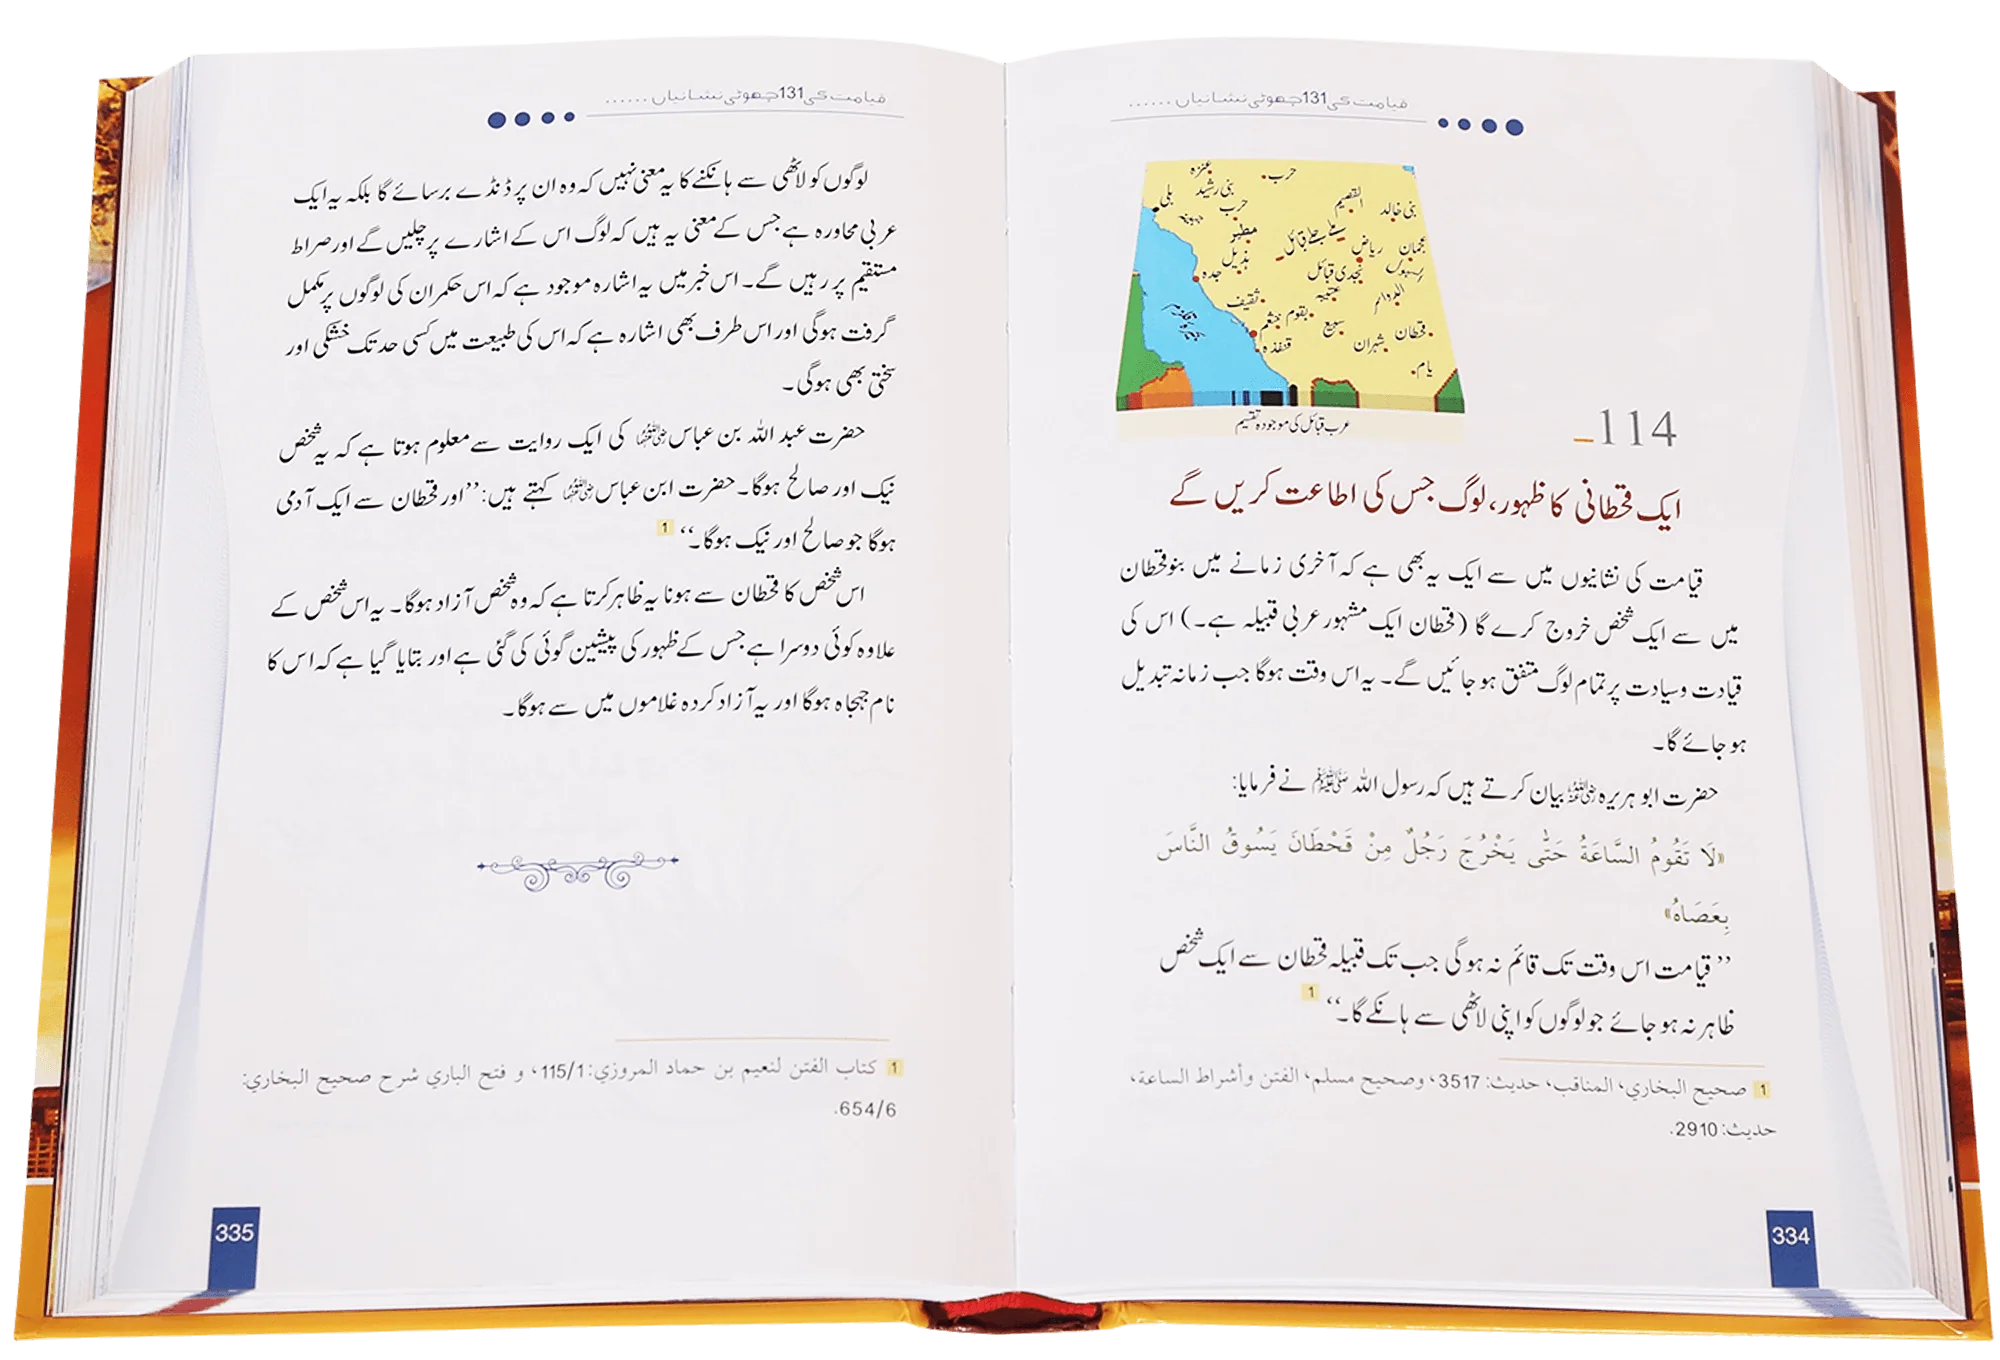 قیامت کی 131 چھوٹی نشانیاں ......
عنزہ
حرب
بنی رشید
بلی
حرب
جہینہ
القصیم
بنی خالد
مطیر
ملے جلے قبائل
ریاض
عجمان
ہذیل
نجدی قبائل
سہول
جدہ
عتیبہ
الدواسر
ثقیف
بقوم
خثعم
سبیع
قحطان
قنفذہ
شہران
یام
بحیرۂ قلزم
عرب قبائل کی موجودہ تقسیم
114
ایک قحطانی کا ظہور، لوگ جس کی اطاعت کریں گے
قیامت کی نشانیوں میں سے ایک یہ بھی ہے کہ آخری زمانے میں بنو قحطان
میں سے ایک شخص خروج کرے گا (قحطان ایک مشہور عربی قبیلہ ہے۔) اس کی
قیادت وسیادت پر تمام لوگ متفق ہو جائیں گے۔ یہ اس وقت ہوگا جب زمانہ تبدیل
ہو جائے گا۔
حضرت ابو ہریرہ رضی اللہ عنہ بیان کرتے ہیں کہ رسول اللہ ﷺ نے فرمایا:
«لَا تَقُومُ السَّاعَةُ حَتَّى يَخْرُجَ رَجُلٌ مِنْ قَحْطَانَ يَسُوقُ النَّاسَ
بِعَصَاهُ»
”قیامت اس وقت تک قائم نہ ہوگی جب تک قبیلہ قحطان سے ایک شخص
ظاہر نہ ہو جائے جو لوگوں کو اپنی لاٹھی سے ہانکے گا۔“ 1
1 صحيح البخاري، المناقب، حديث: 3517، وصحيح مسلم، الفتن وأشراط الساعة،
حديث: 2910.
334
قیامت کی 131 چھوٹی نشانیاں ......
لوگوں کو لاٹھی سے ہانکنے کا یہ معنی نہیں کہ وہ ان پر ڈنڈے برسائے گا بلکہ یہ ایک
عربی محاورہ ہے جس کے معنی یہ ہیں کہ لوگ اس کے اشارے پر چلیں گے اور صراط
مستقیم پر رہیں گے۔ اس خبر میں یہ اشارہ موجود ہے کہ اس حکمران کی لوگوں پر مکمل
گرفت ہوگی اور اس طرف بھی اشارہ ہے کہ اس کی طبیعت میں کسی حد تک خشکی اور
سختی بھی ہوگی۔
حضرت عبد اللہ بن عباس رضی اللہ عنہما کی ایک روایت سے معلوم ہوتا ہے کہ یہ شخص
نیک اور صالح ہوگا۔ حضرت ابن عباس رضی اللہ عنہما کہتے ہیں: ”اور قحطان سے ایک آدمی
ہوگا جو صالح اور نیک ہوگا۔“ 1
اس شخص کا قحطان سے ہونا یہ ظاہر کرتا ہے کہ وہ شخص آزاد ہوگا۔ یہ اس شخص کے
علاوہ کوئی دوسرا ہے جس کے ظہور کی پیشین گوئی کی گئی ہے اور بتایا گیا ہے کہ اس کا
نام جہجاہ ہوگا اور یہ آزاد کردہ غلاموں میں سے ہوگا۔
1 كتاب الفتن لنعيم بن حماد المروزي: 115/1، و فتح الباري شرح صحيح البخاري:
654/6.
335